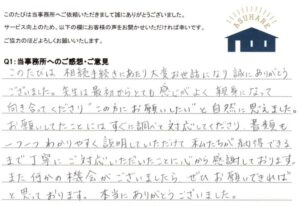 このたびは、当事務所へご依頼いただきまして誠にありがとうございました。
サービス向上のため、以下の欄にお客様の声をお聞かせいただければ幸いです。
ご協力のほどよろしくお願いいたします。
TSUKABE
Q1:当事務所へのご感想・ご意見
このたびは 相続手続きにあたり大変お世話になり誠にありがとう
ございました。先生は最初からとても感じがよく 親身になって
向き合ってくださり"この方にお願いしたい"と自然に思えました。
お願いしてたことにはすぐに調べて対応してくださり、書類も
一つ一つわかりやすく説明していただけて 私たちが納得できる
まで丁寧に ご対応いただいたことに心から感謝しております。
また何かの機会がございましたら ぜひお願いできれば
と思っております。本当にありがとうございました。